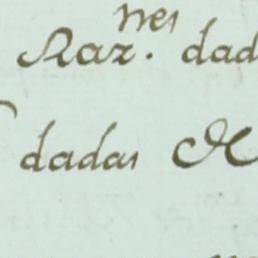 Raz.nes dad
dadas